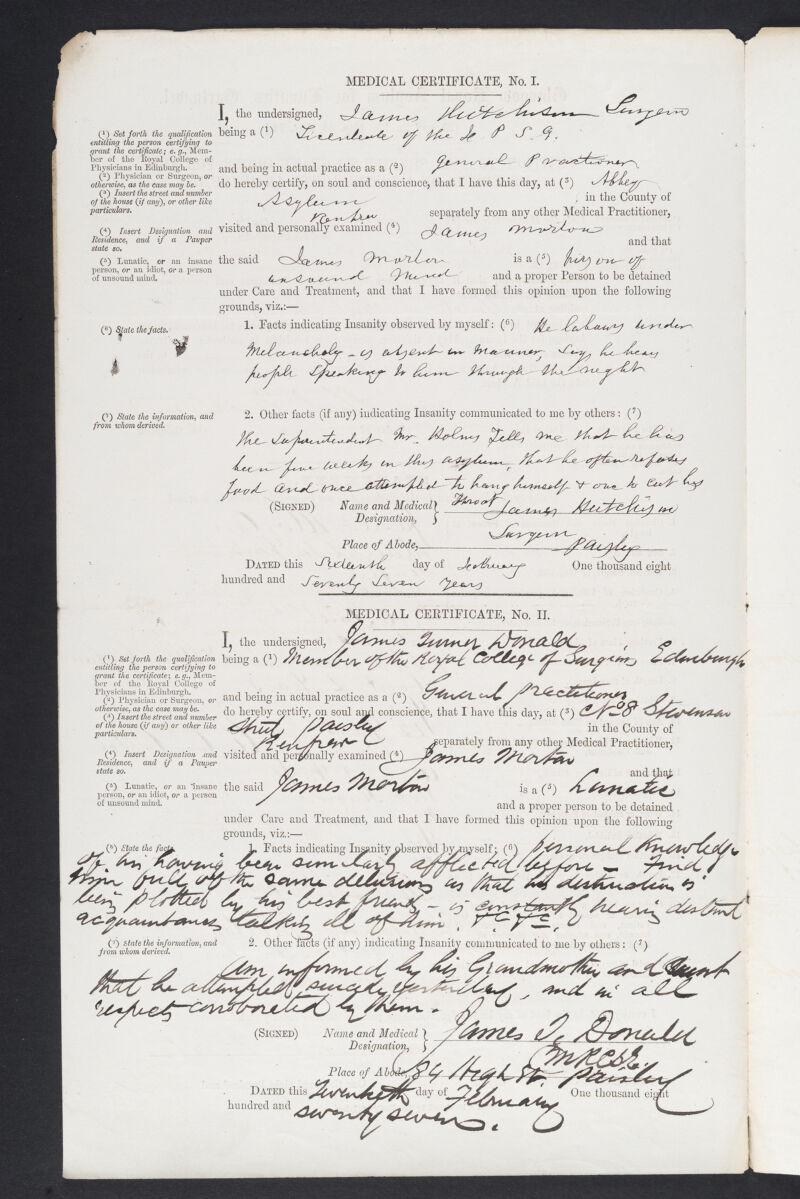 MEDICAL CERTIFICATE, No. I.
I, the undersigned, James Hutchison Surgeon
being a (1) Licentiate of the P S G.
(1) Set forth the qualification
entitling the person certifying to
grant the certificate; e. g., Mem-
ber of the Royal College of
Physicians in Edinburgh.
(2) Physician or Surgeon, or
otherwise, as the case may be.
(3) Insert the street and number
of the house (if any), or other like
particulars.
and being in actual practice as a (2) general Practioner
do hereby certify, on soul and conscience, that I have this day, at (3) Abbey
Asylum in the County of
Renfrew separately from any other Medical Practitioner,
(4) Insert Designation and
Residence, and if a Pauper
state so.
visited and personally examined (4) James Morton
and that
(5) Lunatic, or an insane
person, or an idiot, or a person
of unsound mind.
the said James Morton is a (5) person of
unsound Mind and a proper Person to be detained
under Care and Treatment, and that I have formed this opinion upon the following
grounds, viz.:—
(6) State the facts.
1. Facts indicating Insanity observed by myself: (6) He labours under
Melancholy - is absent in manner, says he hears
people speaking to him through the night
(7) State the information, and
from whom derived.
2. Other facts (if any) indicating Insanity communicated to me by others: (7)
The Superintendent Mr. Holmes Tells me that he has
been five weeks in this asylum, that he often refuses
food and once attempted to hang himself & one to cut his
Throat
(SIGNED) Name and Medical Designation, James Hutchison
Surgeon
Place of Abode, Paisley
DATED this Sixteenth day of February One thousand eight
hundred and Seventy Seven Years
MEDICAL CERTIFICATE, No. II.
I, the undersigned, James Turner Donald
being a (1) Member of the Royal College of Surgeons Edinburgh
(1) Set forth the qualification
entitling the person certifying to
grant the certificate; e. g., Mem-
ber of the Royal College of
Physicians in Edinburgh.
(2) Physician or Surgeon, or
otherwise, as the case may be.
(3) Insert the street and number
of the house (if any) or other like
particulars.
and being in actual practice as a (2) General Practitioner
do hereby certify, on soul and conscience, that I have this day, at (3) No 8 Stevenson
Street, Paisley in the County of
Renfrew separately from any other Medical Practitioner,
(4) Insert Designation and
Residence, and if a Pauper
state so.
visited and personally examined (4) James Morton
and that
(5) Lunatic, or an insane
person, or an idiot, or a person
of unsound mind.
the said James Morton is a (5) Lunatic
and a proper person to be detained
under Care and Treatment, and that I have formed this opinion upon the following
grounds, viz.:—
(6) State the facts.
1. Facts indicating Insanity observed by myself; (6) personal knowledge
of his having been similarly afflicted before - Find
him full of the same delusions as that his destruction is
being plotted by his best friend - is constantly hearing distant
acquaintances talking ill of him.
(7) State the information, and
from whom derived.
2. Other facts (if any) indicating Insanity communicated to me by others: (7)
Am informed by his Grandmother and Aunt
that he attempted suicide yesterday, and in all
respects corroborated by them.
(SIGNED) Name and Medical Designation, James T. Donald
MRCSE.
Place of Abode, 84 High St. Paisley
DATED this Twentieth day of February One thousand eight
hundred and seventy seven.